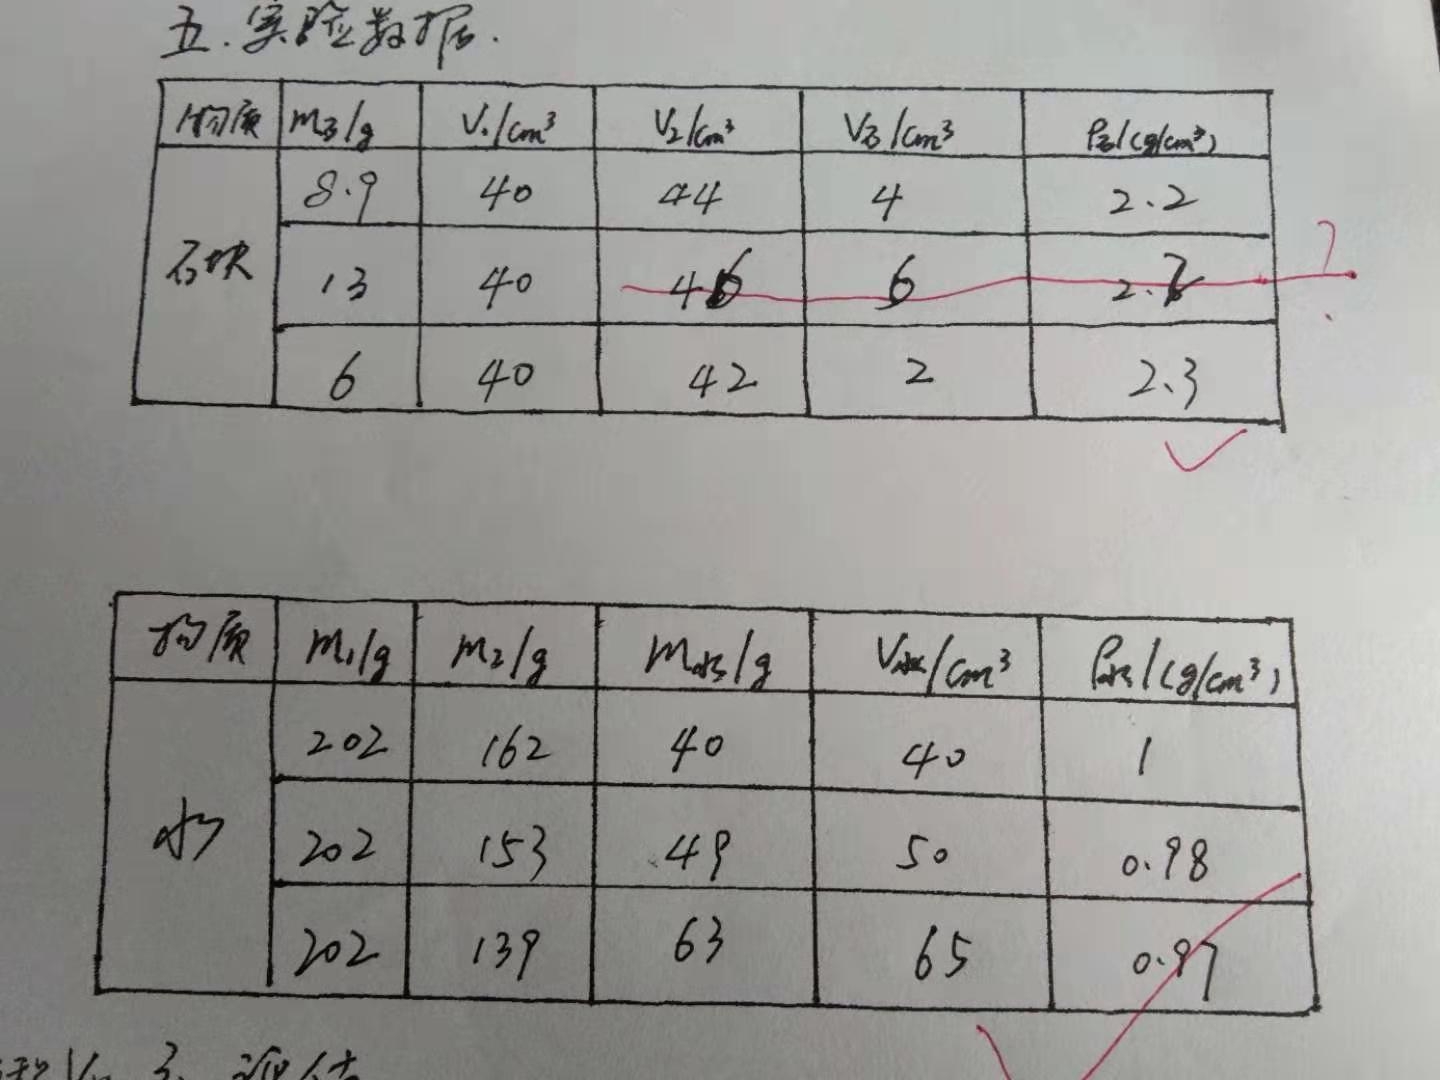 五.实验数据.
物质 m石/g V₁/cm³ V₂/cm³ V石/cm³ ρ石/(g/cm³)
8.9 40 44 4 2.2
石块 13 40 46 6 2.2 ?
6 40 42 2 2.3
物质 m₁/g m₂/g m水/g V水/cm³ ρ水/(g/cm³)
202 162 40 40 1
水 202 153 49 50 0.98
202 139 63 65 0.97
评估